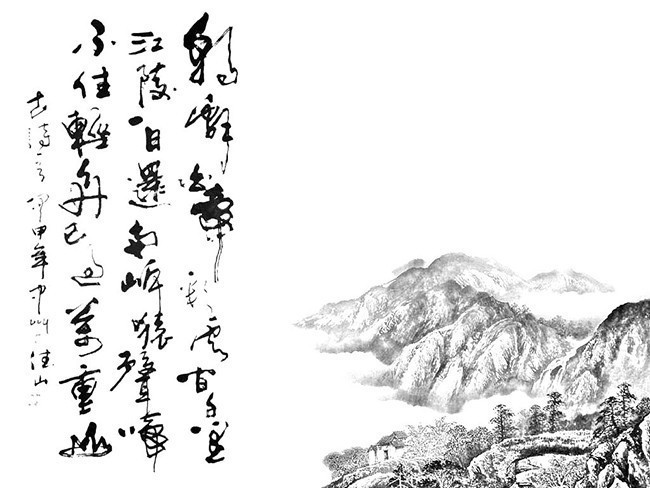 朝辭白帝彩雲間千里
江陵一日還兩岸猿聲啼
不住輕舟已過萬重山
古詩一首甲申年中州佳山